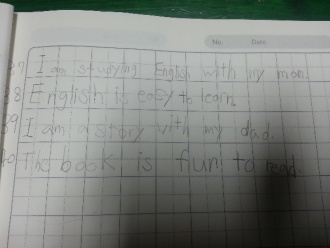 No. Date.
37 I am studying English with my mom.
38 English is easy to learn.
39 I am a story with my dad.
40 The book is fun to read.